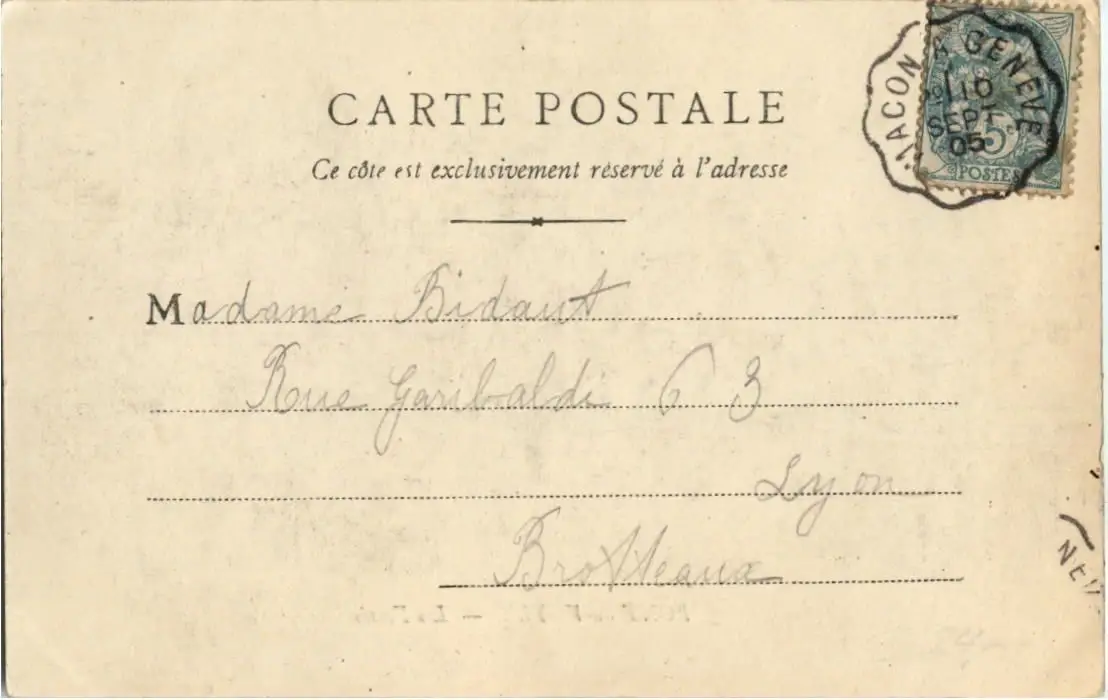 CARTE POSTALE
Ce côte est exclusivement réservé à l'adresse
MACON A GENÈVE
10
SEPT
05
5
POSTES
Madame Bidaut
Rue Garibaldi 63
Lyon
Brotteaux